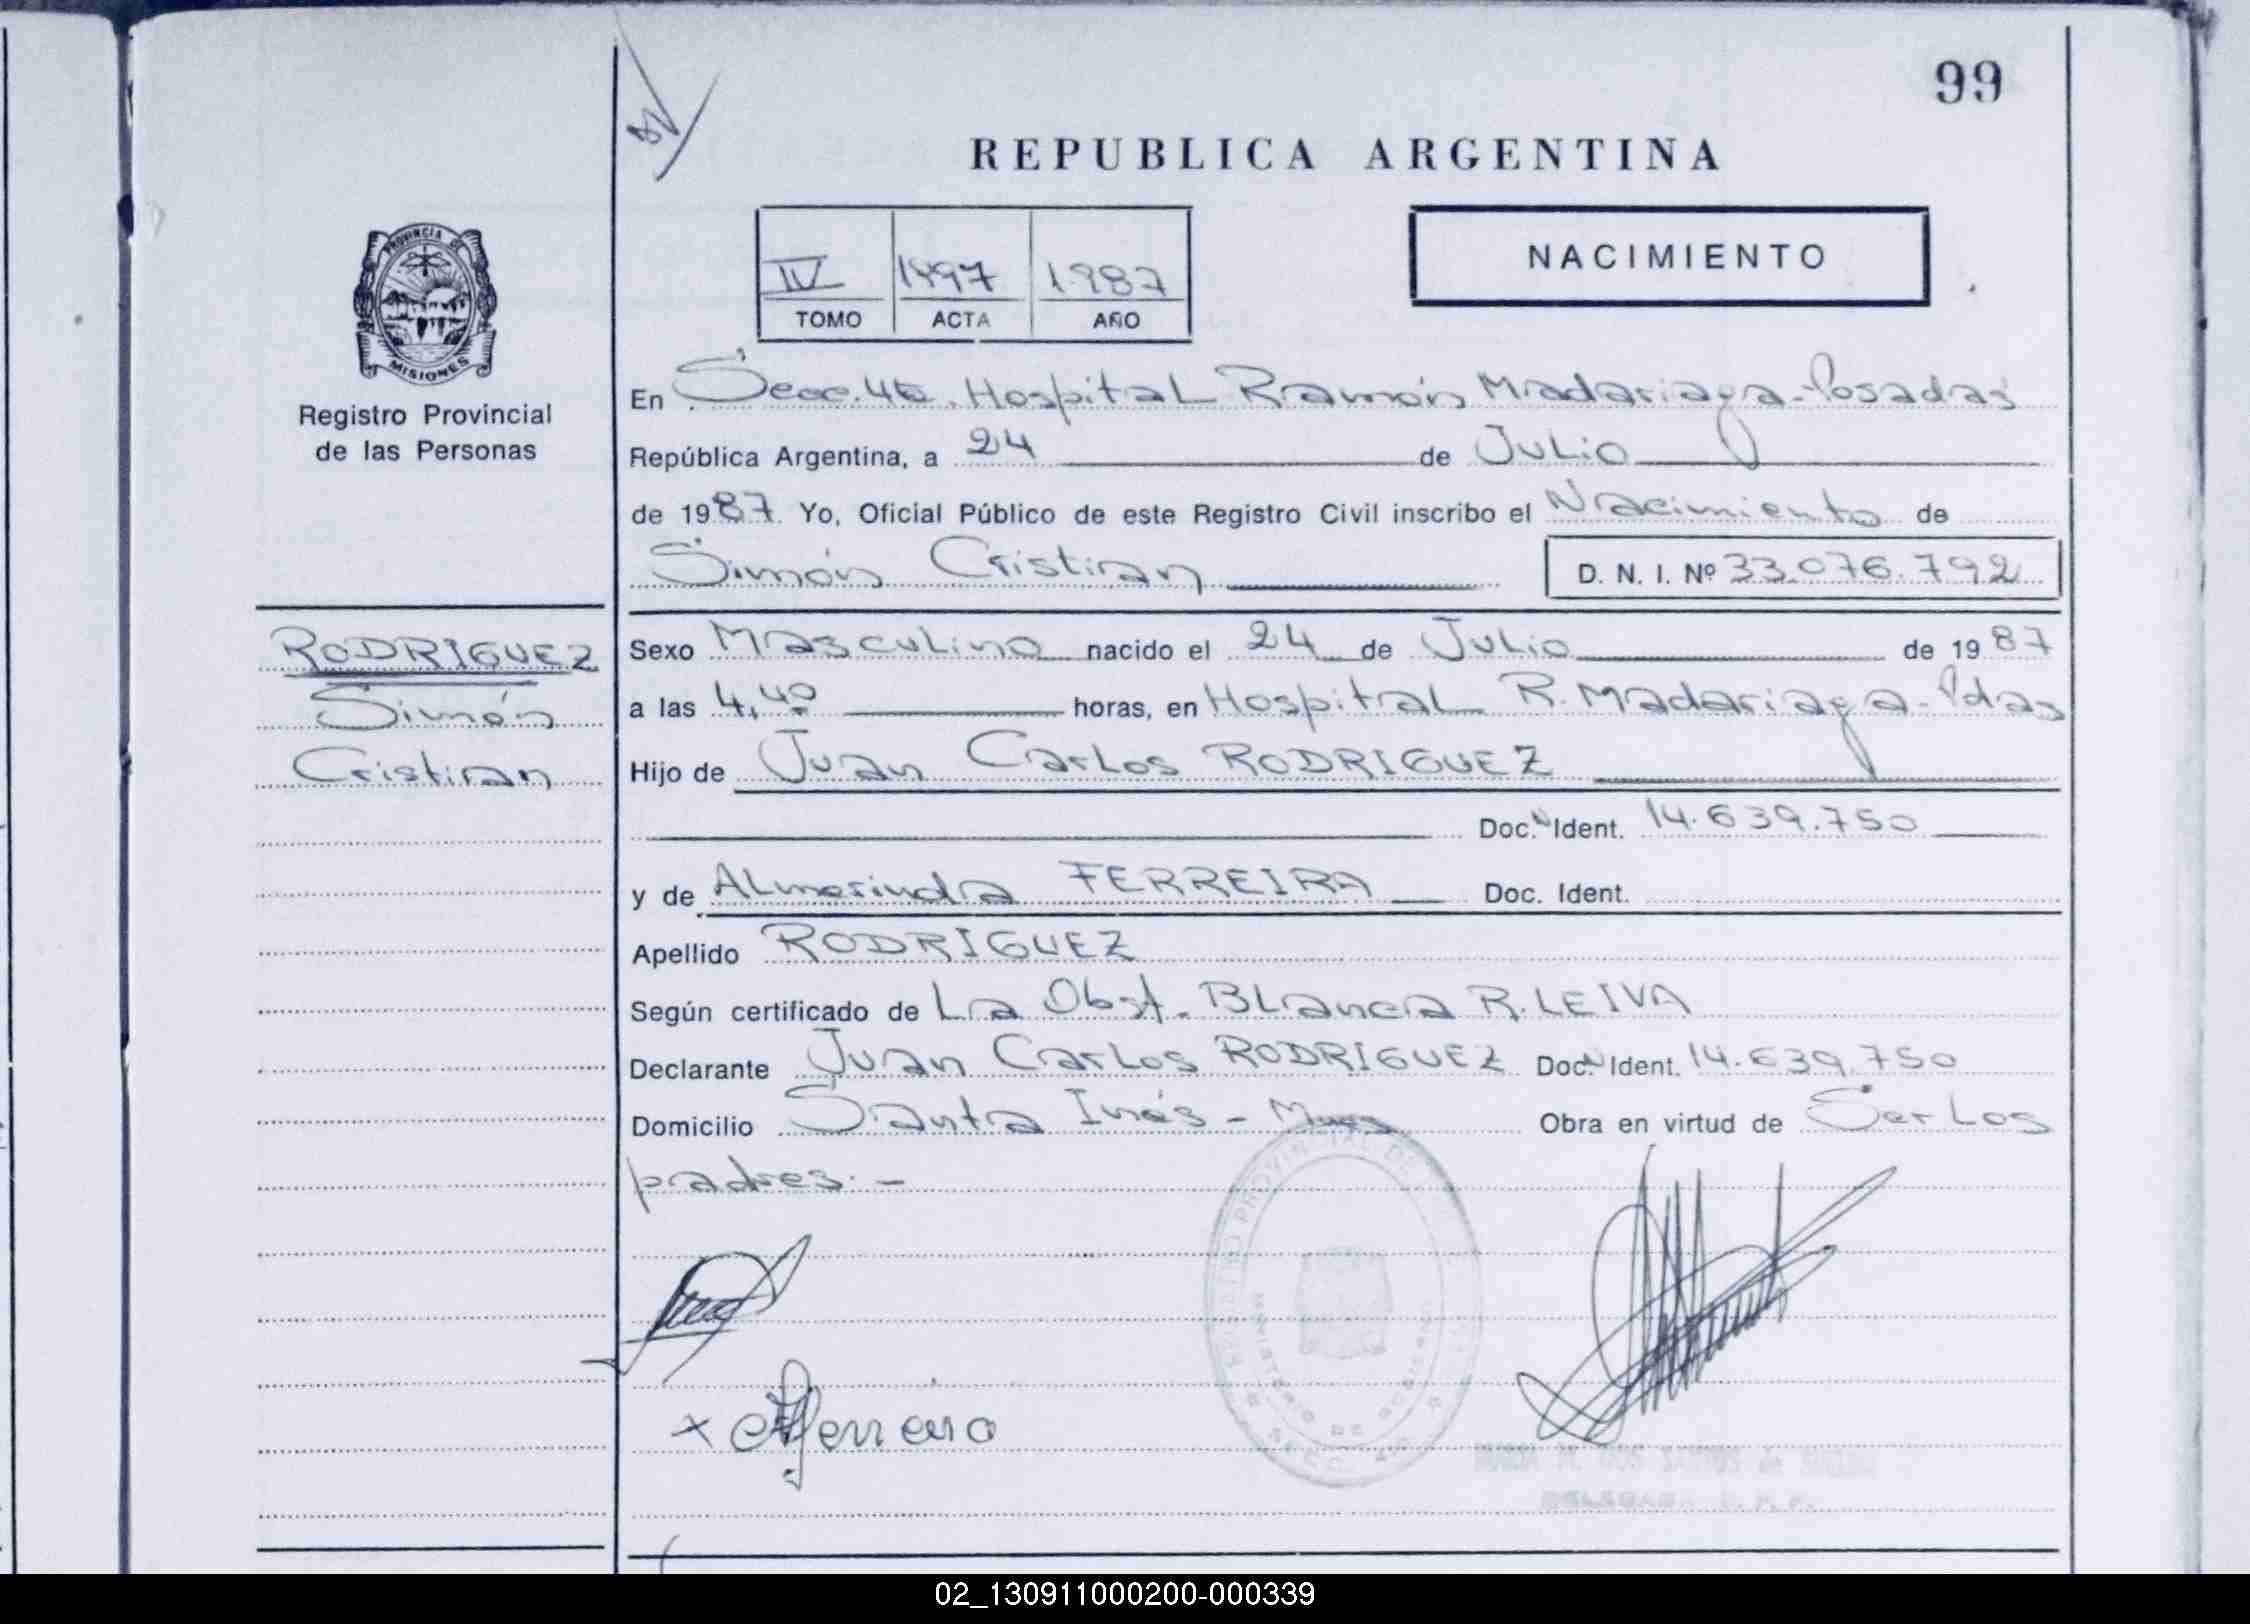 99
REPUBLICA ARGENTINA
PROVINCIA DE
MISIONES
Registro Provincial
de las Personas
IV 1497 1987
TOMO ACTA AÑO
NACIMIENTO
En Secc. 4ta. Hospital Ramón Madariaga-Posadas
República Argentina, a 24 de Julio
de 1987. Yo, Oficial Público de este Registro Civil inscribo el Nacimiento de
Simón Cristian D. N. I. Nº 33.076.792
RODRIGUEZ
Simón
Cristian
Sexo Masculino nacido el 24 de Julio de 1987
a las 4,40 horas, en Hospital R. Madariaga-Pdas
Hijo de Juan Carlos RODRIGUEZ
Doc. N Ident. 14.639.750
y de Almerinda FERREIRA Doc. Ident.
Apellido RODRIGUEZ
Según certificado de La Obst. Blanca R. LEIVA
Declarante Juan Carlos RODRIGUEZ Doc. N Ident. 14.639.750
Domicilio Santa Inés - Mnes Obra en virtud de Ser Los
padres.-
REGISTRO PROVINCIAL DE
MINISTERIO DE GOBIERNO
SECC. 4ta
x Ferreira
DOS SANTOS de
DELEGADA R. P. P.
02_130911000200-000339